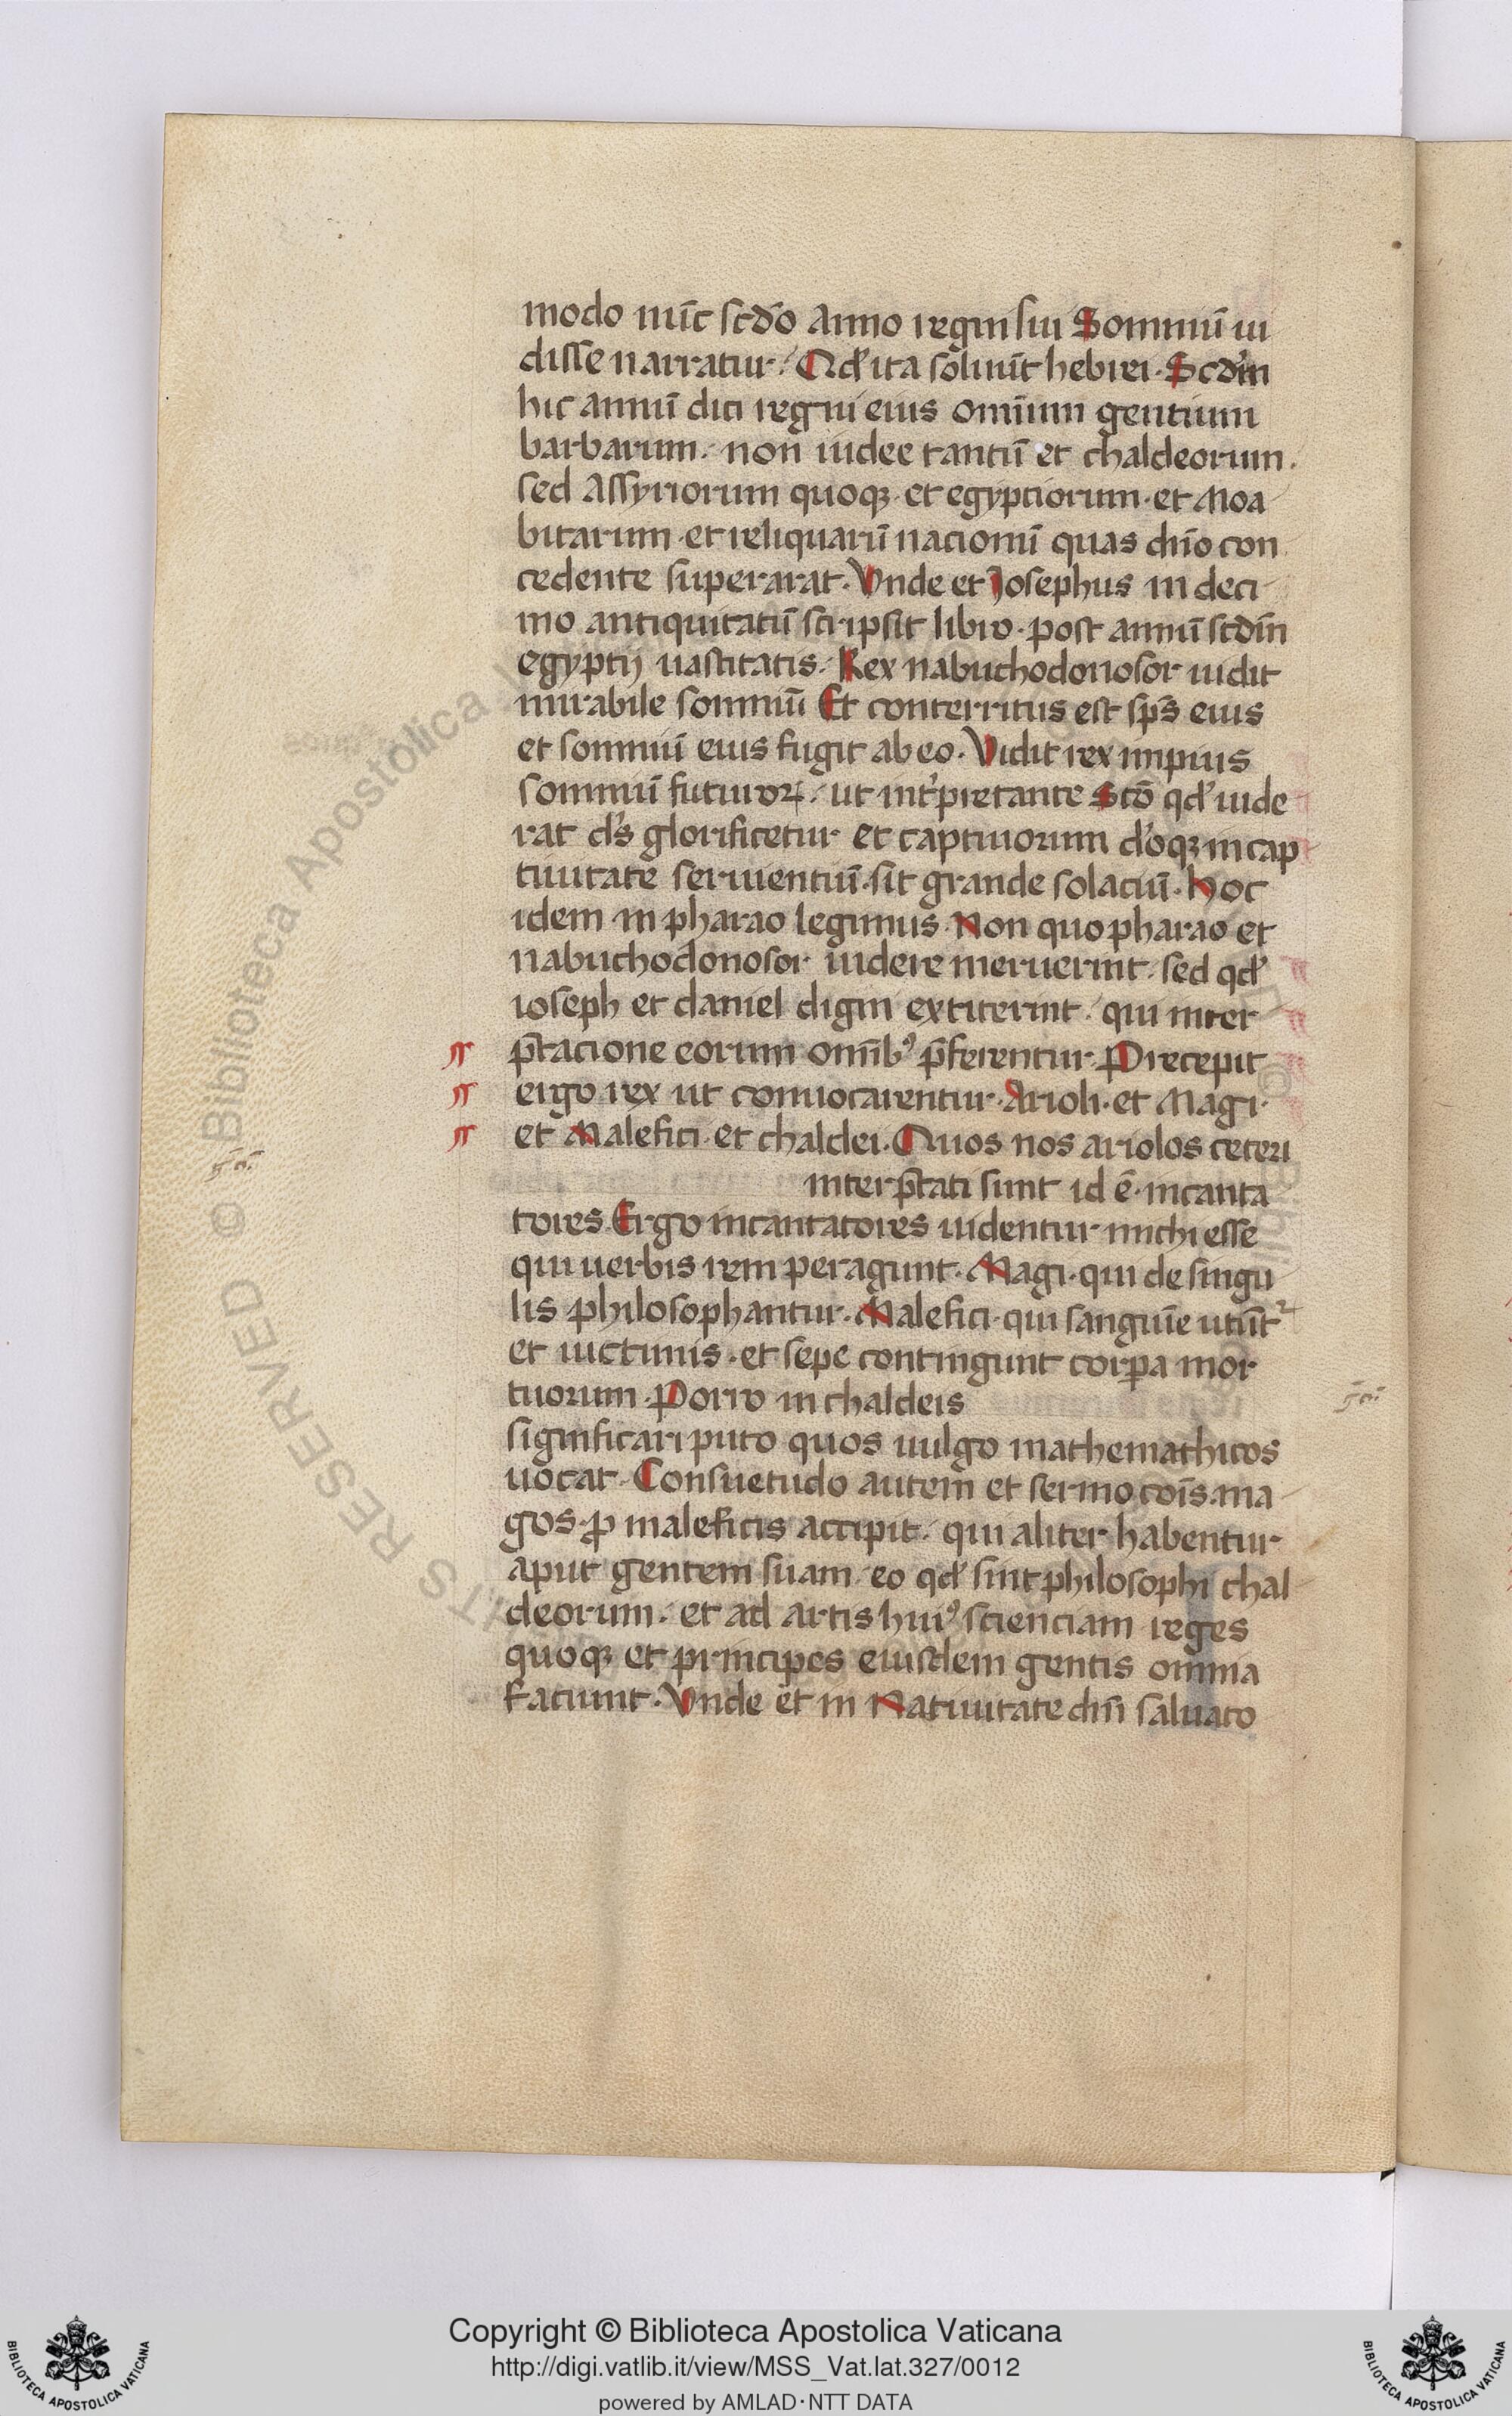 modo nūc scd̄o anno regni sui Somniū ui
disse narratur. Qd̕ ita soluūt hebrei. Scd̄m
hic annū dici regni eius omīum gentium
barbarum. non iudee tantū et chaldeorum.
sed Assyriorum quoqꝫ et egyptiorum. et Moa
bitarum et reliquarū nacionū quas dño con
cedente superarat. Vnde et Josephus in deci
mo antiquitatū scripsit libro. post annū scd̄m
egyptij uastitatis. Rex nabuchodonosor uidit
mirabile somniū Et conterritus est sp̄s eius
et somniū eius fugit ab eo. Vidit rex impius
somniū futuroꝝ. ut int̕pretante sc̄o qd̕ uide
rat d̕s glorificetur et captiuorum d̕oqꝫ in cap
tiuitate seruientiū. sit grande solaciū. Hoc
idem in pharao legimus. Non quo pharao et
nabuchodonosor uidere meruerint. sed qd̕
ioseph et daniel digni extiterint. qui inter
p̄tacione eorum omīb⁹ p̄ferentur. Precepit
ergo rex ut conuocarentur. Arioli. et Magi.
et Malefici. et chaldei. Quos nos ariolos ceteri
interp̄tati sunt id ē. incanta
tores. Ergo incantatores uidentur michi esse
qui uerbis rem peragunt. Magi. qui de singu
lis philosophantur. Malefici. qui sanguīe utūt᷑
et uictimis. et sepe contingunt corꝑa mor
tuorum. Porro in chaldeis
significari puto quos uulgo mathemathicos
uocat. Consuetudo autem et sermo cōis. ma
gos. ꝓ maleficis accipit. qui aliter habentur
aput gentem suam. eo qd̕ sint philosophi chal
deorum. et ad artis hui⁹ scienciam reges
quoqꝫ et principes eiusdem gentis omnia
faciunt. Vnde et in Natiuitate dn̄i saluato
© Biblioteca Apostolica
RESERVED
Copyright © Biblioteca Apostolica Vaticana
http://digi.vatlib.it/view/MSS_Vat.lat.327/0012
powered by AMLAD·NTT DATA
BIBLIOTECA APOSTOLICA VATICANA
BIBLIOTECA APOSTOLICA VATICANA